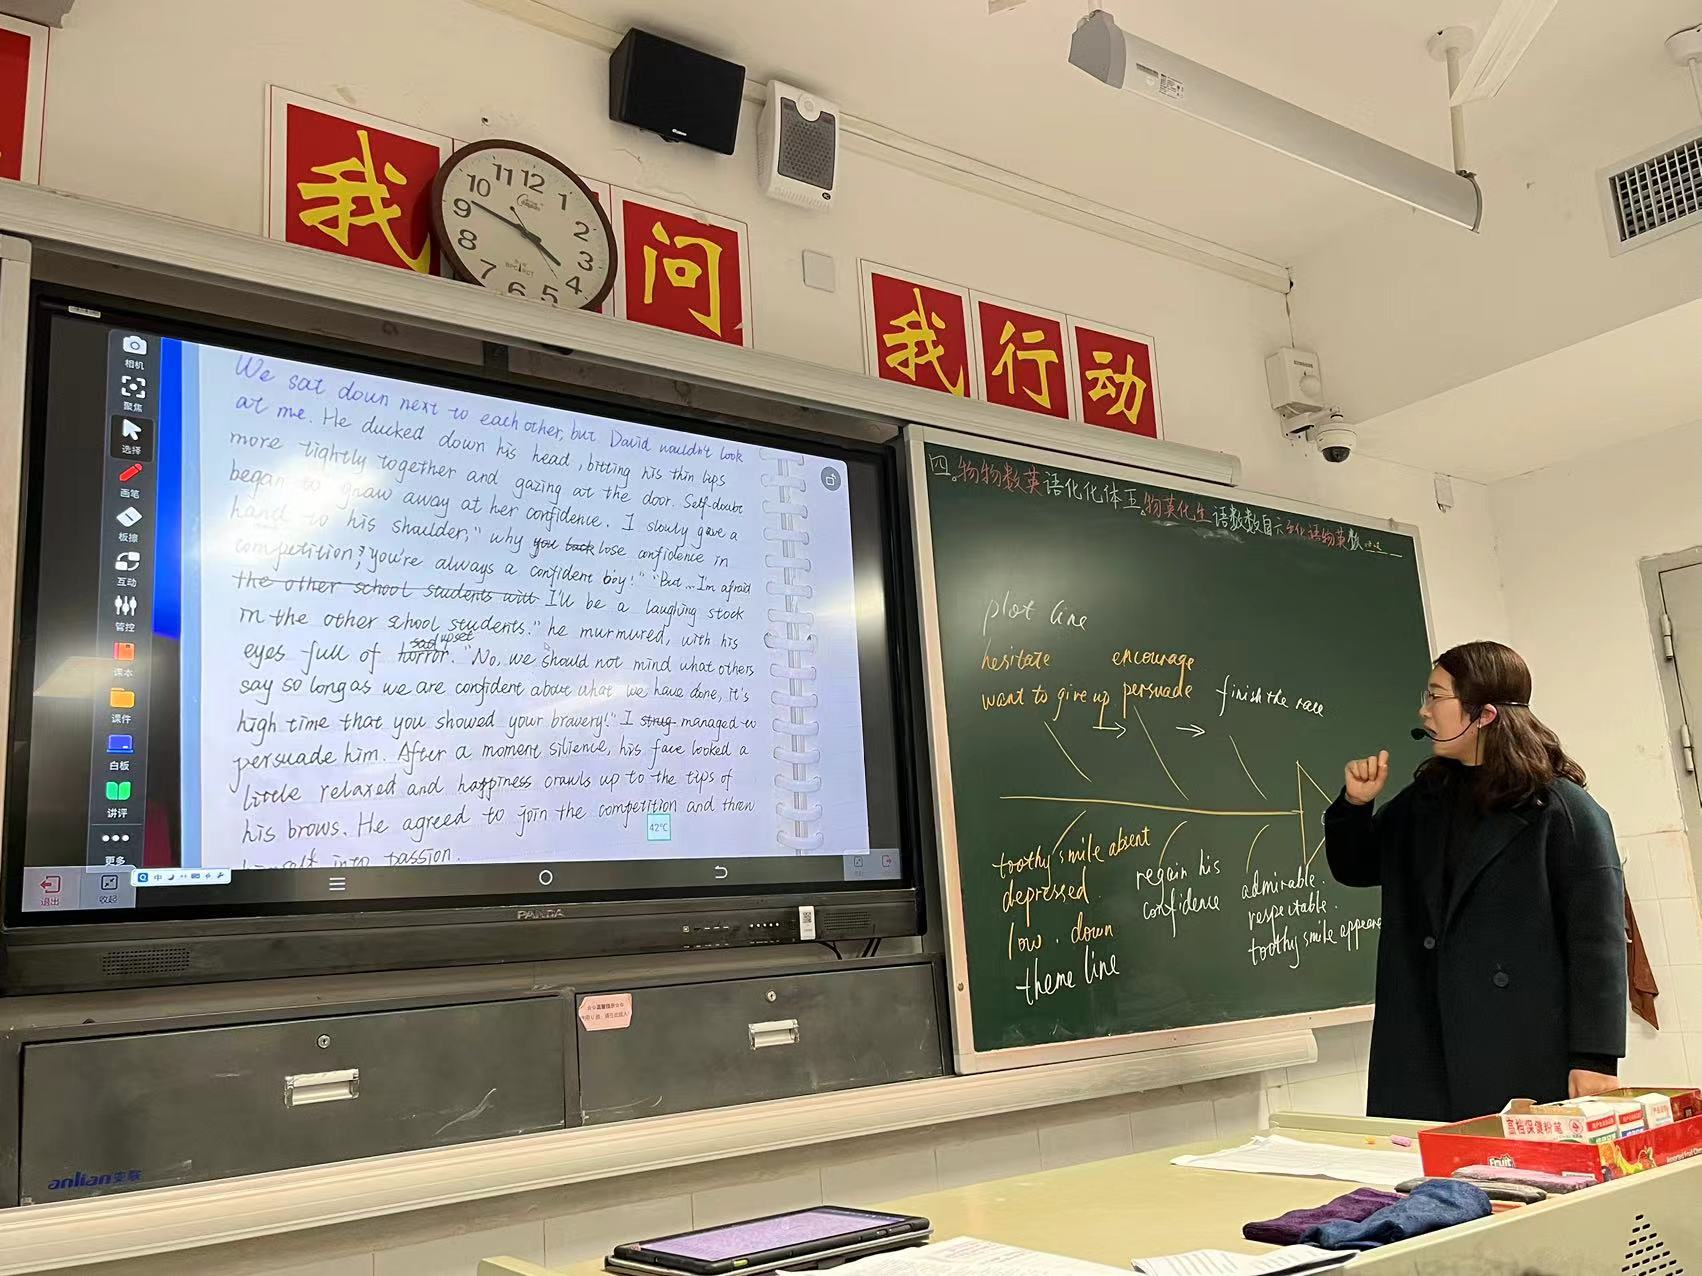 我
问
我行动
11 12 1
10
2
9
3
8
4
7
6 5
Canon
相机
聚焦
选择
画笔
板擦
互动
管控
课本
课件
白板
讲评
更多
退出
收起
We sat down next to each other, but David wouldn't look
at me. He ducked down his head, bitting his thin lips
more tightly together and gazing at the door. Self-doubt
began to gnaw away at her confidence. I slowly gave a
hand to his shaulder, "why you lack lose confidence in
competition? you're always a confident boy!" "But... I'm afraid
the other school students will I'll be a laughing stock
in the other school students." he murmured, with his
sad upset
eyes full of horror. "No, we should not mind what others
say so long as we are confident about what we have done, it's
high time that you showed your bravery!" I strug managed to
persuade him. After a moment silience, his face looked a
little relaxed and happiness crawls up to the tips of
his brows. He agreed to join the competition and threw
himself into passion.
42°C
中
PANDA
anlian
四。物物数英语化化体五.物英化生语数数自六
plot line
hesitate encourage
want to give up persuade finish the race
toothy smile absent
depressed
low. down
theme line
regain his
confidence
admirable.
respectable.
toothy smile appears
高档保健粉笔
Fruit